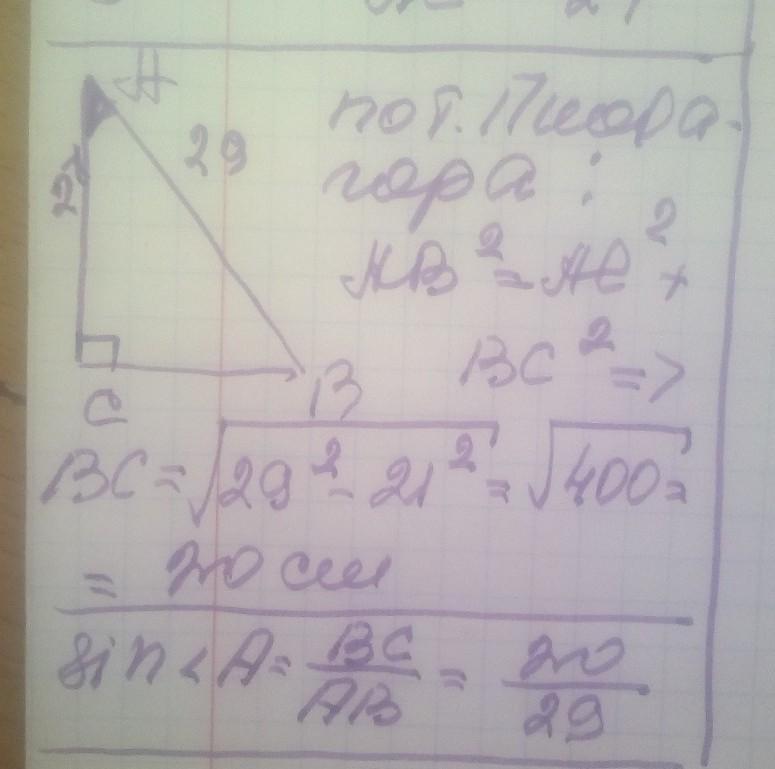 A
29
21
C
B
по т. Пифа-
гора :
AB² = AC² +
BC² =>
BC = √29² - 21² = √400 =
= 20 см
sin < A = BC/AB = 20/29